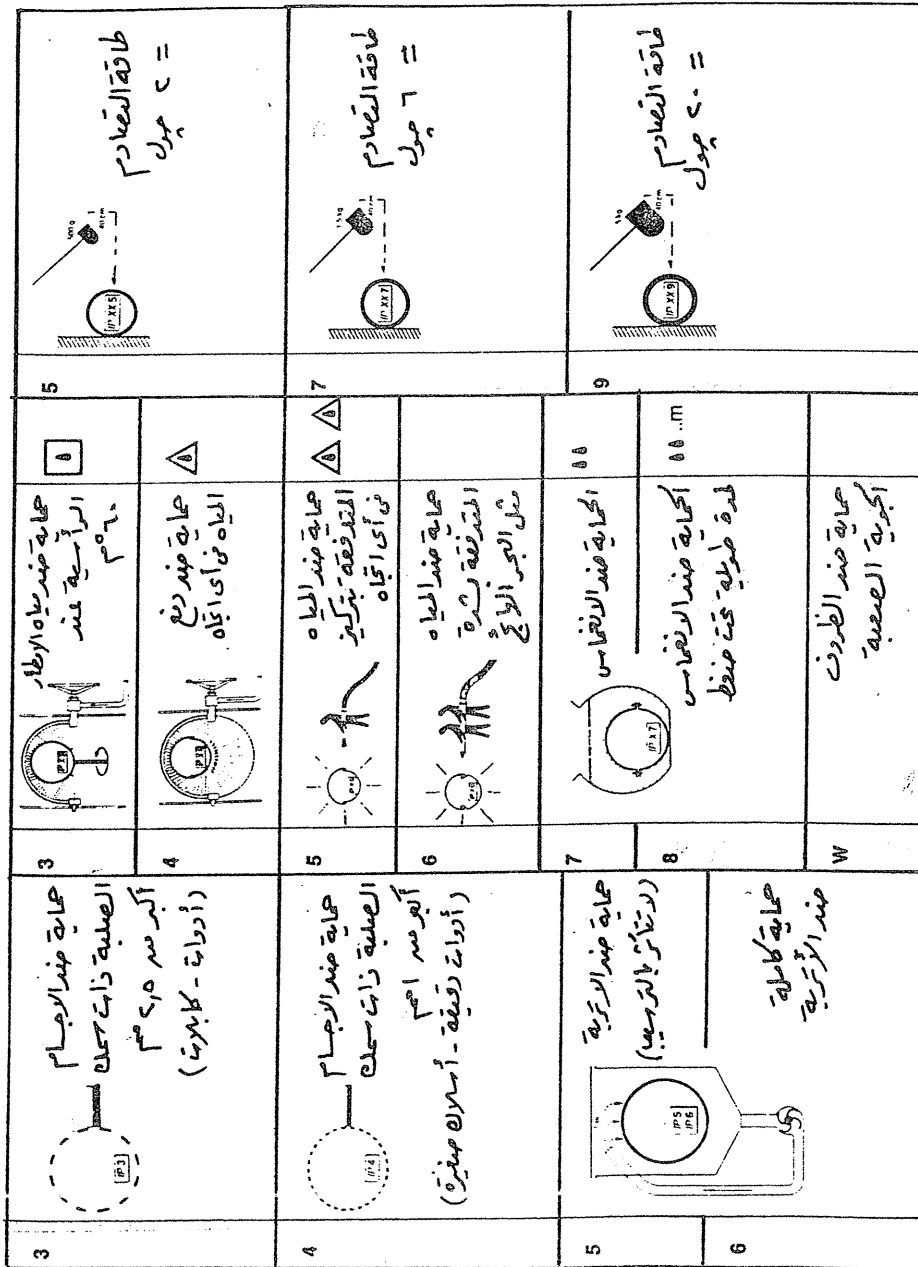 3
IP 3
حماية ضد الاجسام
الصلبة ذات سمك
أكبر من ٢,٥ مم
(أدوات - كابلات)
4
IP 4
حماية ضد الاجسام
الصلبة ذات سمك
أكبر من ١ مم
(أدوات دقيقة - أسلاك صغيرة)
5
IP 5
IP 6
حماية ضد الاتربة
(لا تتأثر بالترسيب)
6
حماية كاملة
ضد الأتربة
3
حماية ضد مياه الامطار
الرأسية عند
٦٠°
4
حماية ضد دفع
المياه فى أى اتجاه
5
حماية ضد المياه
المتدفقة بتركيز
فى أى اتجاه
6
حماية ضد المياه
المتدفقة بشدة
مثل البحر الهائج
7
IP X7
الحماية ضد الانغماس
8
الحماية ضد الانغماس
لمدة طويلة تحت ضغط
..m
W
حماية ضد الظروف
الجوية الصعبة
5
IP XX5
40 cm
طاقة التصادم
= ٢ جول
7
IP XX7
1.5 kg
40 cm
طاقة التصادم
= ٦ جول
9
IP XX9
40 cm
طاقة التصادم
= ٢٠ جول